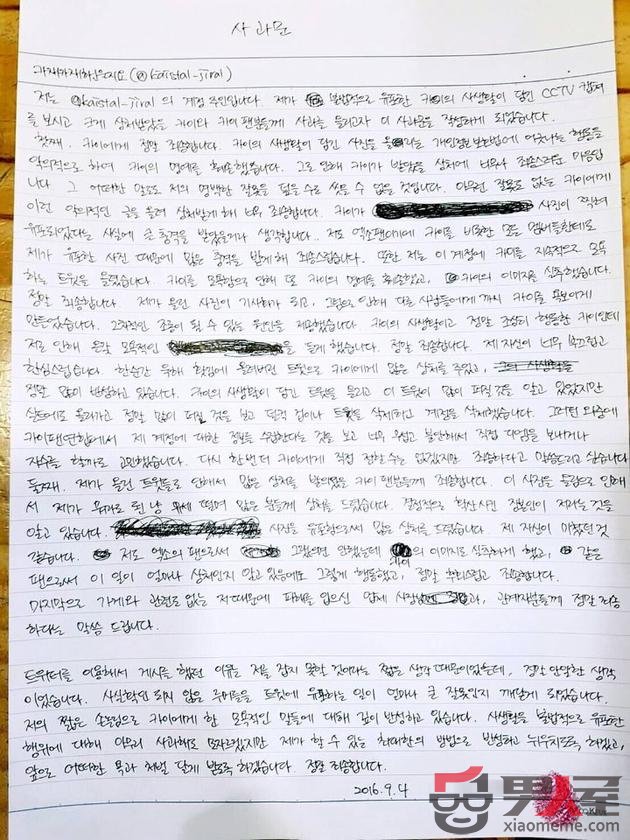 사과문
카재가재하는지요(@kaistal_jiral)
저는 @kaistal_jiral의 계정 주인입니다. 제가 불법적으로 유포한 카이의 사생활이 담긴 CCTV 캡쳐
를 보시고 크게 상처받았을 카이와 카이 팬분들께 사과를 드리고자 이 사과문을 작성하게 되었습니다.
첫째. 카이에게 정말 죄송합니다. 카이의 사생활이 담긴 사진을 개인정보보호법에 어긋나는 행동을
악의적으로 하여 카이의 명예를 훼손했습니다. 그로 인해 카이가 받았을 상처에 너무나 죄송스러운 마음입
니다. 그 어떠한 말로도 저의 명백한 잘못을 덮을 수도 씻을 수 없을 것입니다. 아무런 잘못도 없는 카이에게
이런 악의적인 글을 올려 상처받게 해 너무 죄송합니다. 카이가 사진이 찍혀
유포되었다는 사실에 큰 충격을 받았을거라 생각합니다.. 저도 엑소팬이기에 카이를 비롯한 모든 멤버들한테도
제가 유포한 사진 때문에 많은 충격을 받게 해 죄송스럽습니다. 또한 저는 이 계정에 카이를 지속적으로 모욕
하는 트윗을 올렸습니다. 카이를 모욕함으로 인해 또 카이의 명예를 훼손했고, 카이의 이미지를 실추했습니다.
정말 죄송합니다. 제가 올린 사진이 기사화가 되고, 그럼으로 인해 다른 사람들에게까지 카이를 욕보이게
만들었습니다. 그차적인 조롱이 될 수 있는 원인을 제공했습니다. 카이의 사생활이고 정말 조심히 행동한 카이인데
저로 인해 온갖 모욕적인 을 듣게 했습니다. 정말 죄송합니다. 제 자신이 너무 부끄럽고
한심스럽습니다. 한순간 욱해 홧김에 올려버린 트윗으로 카이에게 많은 상처를 주었고,
정말 많이 반성하고 있습니다. 카이의 사생활이 담긴 트윗을 올리고 이 트윗이 많이 퍼질 것을 알고 있었지만
실트에도 올라가고 정말 많이 퍼질 것을 보고 덜컥 겁이나 트윗을 삭제하고 계정을 삭제했습니다. 그러던 와중에
카이팬연합에서 제 계정에 대한 정보를 수집한다는 것을 보고 너무 무섭고 불안해서 직접 디엠을 보내거나
자수를 할까도 고민했습니다. 다시 한번 더 카이에게 직접 전할 수는 없겠지만 죄송하다고 말씀드리고 싶습니다
둘째. 제가 올린 트윗들로 인해서 많은 상처를 받아했을 카이 팬분들께 죄송합니다. 이 사진을 올림으로 인해
서 제가 뭐라도 된 냥 유세 떨며 많은 분들께 상처를 드렸습니다. 결정적으로 확산시킨 장본인이 저라는 것을
알고 있습니다. 사진을 유포함으로써 많은 상처를 드렸습니다. 제 자신이 미쳤던 것
같습니다. 저도 엑소의 팬으로써 그랬으면 안됐는데 카이의 이미지도 실추하게 했고, 같은
팬으로써 이 일이 얼마나 상처인지 알고 있음에도 그렇게 행동했고, 정말 후회스럽고 죄송합니다.
마지막으로 가게와 관련도 없는 저 때문에 피해를 입으신 업체 사장님과, 관계자분들께 정말 죄송
하다는 말씀 드립니다.
트위터를 이용해서 게시를 했던 이유는 저를 잡지 못할 것이라는 짧은 생각 때문이었는데, 정말 안일한 생각
이었습니다. 사실확인 되지 않은 루머들을 트윗에 유포하는 일이 얼마나 큰 잘못인지 깨닫게 되었습니다.
저의 짧은 손놀림으로 카이에게 한 모욕적인 말들에 대해 깊이 반성하고 있습니다. 사생활을 불법적으로 유포한
행위에 대해 아무리 사과해도 모자르겠지만 제가 할 수 있는 최대한의 방법으로 반성하고 뉘우치도록 하겠고,
앞으로 어떠한 욕과 처벌 달게 받도록 하겠습니다. 정말 죄송합니다.
2016.9.4
男屋
xiaomeme.com